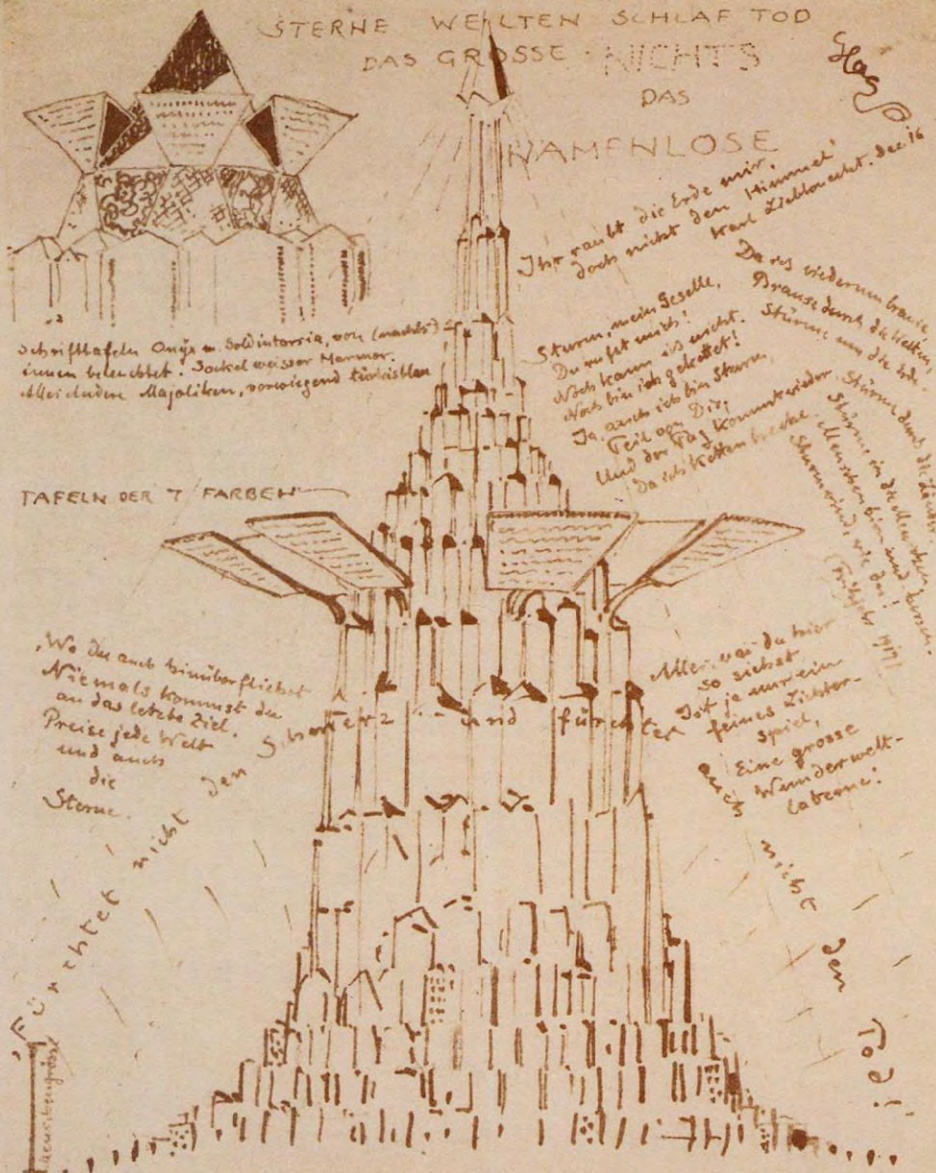 STERNE WELTEN SCHLAF TOD
DAS GROSSE NICHTS
DAS
NAMENLOSE
Glas
Ihr raubt die Erde mir,
doch nicht den Himmel'
Karl Liebknecht. Dec 16
Schrifttafeln Onyx m. Goldintarsia, von (nachts)
innen beleuchtet. Sockel weisser Marmor.
Alles andere Majoliken, vorwiegend türkisblau
Sturm, mein Geselle,
Du rufst mich!
Noch kann ich nicht.
Noch bin ich gekettet!
Ja, auch ich bin Sturm,
Teil von Dir;
Und der Tag kommt wieder
da ich Ketten breche.
Da es wiederum
Brause durch die Welten,
Stürme um die Erde.
Stürme durch die Länder
Stürme in die Menschen
Menschenhirn und Herzen.
Sturmwind wie du!
Frühjahr 1917
TAFELN DER 7 FARBEN
'Wo du auch hinüberfliehst
Niemals kommst du
an das letzte Ziel.
Preise jede Welt
und auch
die
Sterne.
Alles, was du hier
so siehst
Ist ja nur ein
feines Lichter-
spiel,
Eine grosse
Wunderwelt-
laterne!
'Fürchtet nicht den Schmerz und fürchtet auch nicht den Tod!